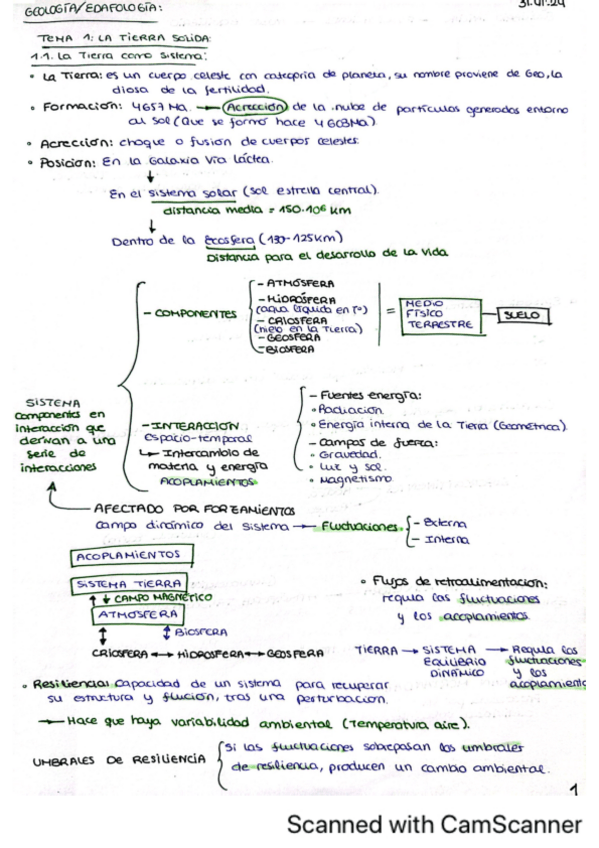 GEOLOGÍA/EDAFOLOGÍA:
31.01.24
TEMA 1: LA TIERRA SOLIDA:
1.1. La Tierra como Sistema:
• La Tierra: es un cuerpo celeste con categoria de planeta, su nombre proviene de Geo, la
diosa de la fertilidad.
• Formación: 4657 Ma. → Acrección de la nube de partículas generadas entorno
al Sol (que se formó hace 4603Ma)
• Acrección: choque o fusion de cuerpos celestes
• Posicion: En la Galaxia Vía láctea.
↓
En el sistema solar (sol estrella central).
distancia media = 150.10⁶ km
↓
Dentro de la Ecosfera (130-125km)
Distancia para el desarrollo de la vida
- COMPONENTES
- ATMÓSFERA
- HIDRÓSFERA
(agua líquida en Tº)
- CRIOSFERA
(hielo en la Tierra)
- GEOSFERA
- BIOSFERA
= MEDIO
FÍSICO
TERRESTRE
SUELO
SISTEMA
Componentes en
interacción que
derivan a una
serie de
interacciones
- INTERACCIÓN
espacio-temporal
↳ Intercambio de
materia y energía
ACOPLAMIENTOS
- Fuentes energía:
• Radiación
• Energía interna de la Tierra (Geométrica)
- Campos de fuerza:
• Gravedad.
• Luz y sol.
• Magnetismo
AFECTADO POR FORZAMIENTOS
campo dinámico del sistema → Fluctuaciones
- Externa
- Interna
ACOPLAMIENTOS
SISTEMA TIERRA
↑↓ CAMPO MAGNÉTICO
ATMOSFERA
↕ ↕ BIOSFERA
CRIOSFERA ↔ HIDROSFERA ↔ GEOSFERA
• Flujos de retroalimentacion:
regula las fluctuaciones
y los acoplamientos
TIERRA → SISTEMA → Regula las
EQUILIBRIO fluctuaciones
DINÁMICO y los
acoplamiento
• Resiliencia: Capacidad de un sistema para recuperar
su estructura y función, tras una perturbacion.
→ Hace que haya variabilidad ambiental (Temperatura aire).
UMBRALES DE RESILIENCIA
Si las fluctuaciones sobrepasan los umbrales
de resiliencia, producen un cambio ambiental.
1
Scanned with CamScanner